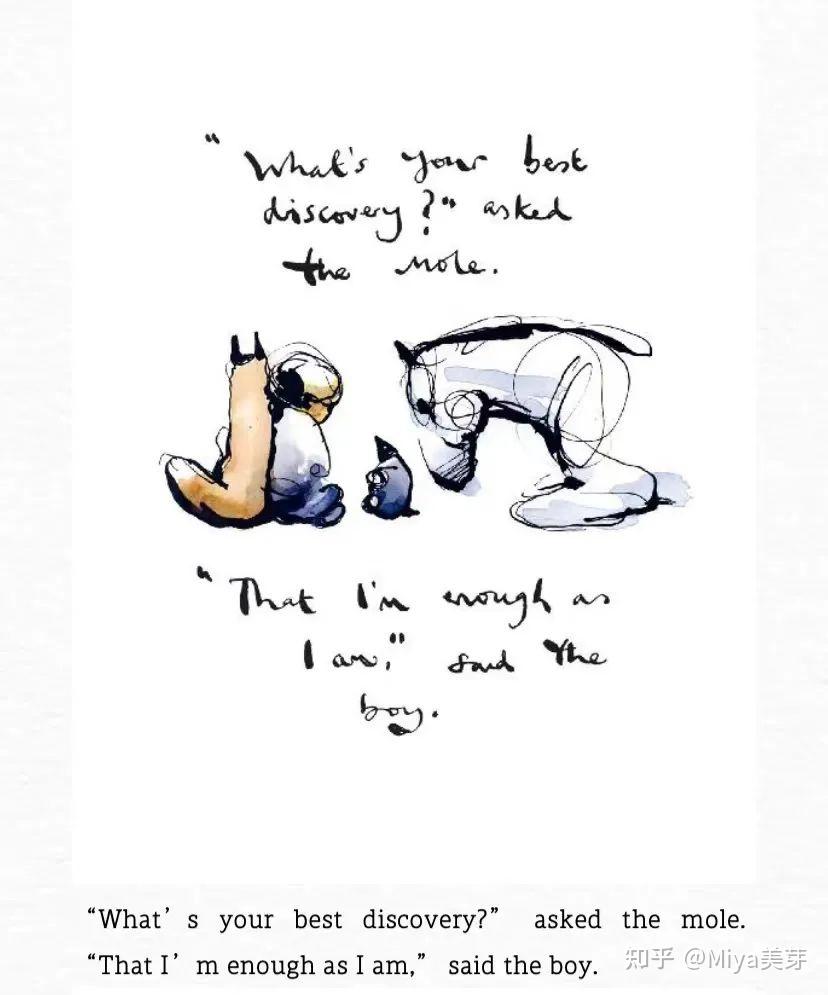 "What's your best
discovery?" asked
the mole.
"That I'm enough as
I am," said the
boy.
“What’s your best discovery?” asked the mole.
“That I’m enough as I am,” said the boy.
知乎 @Miya美芽